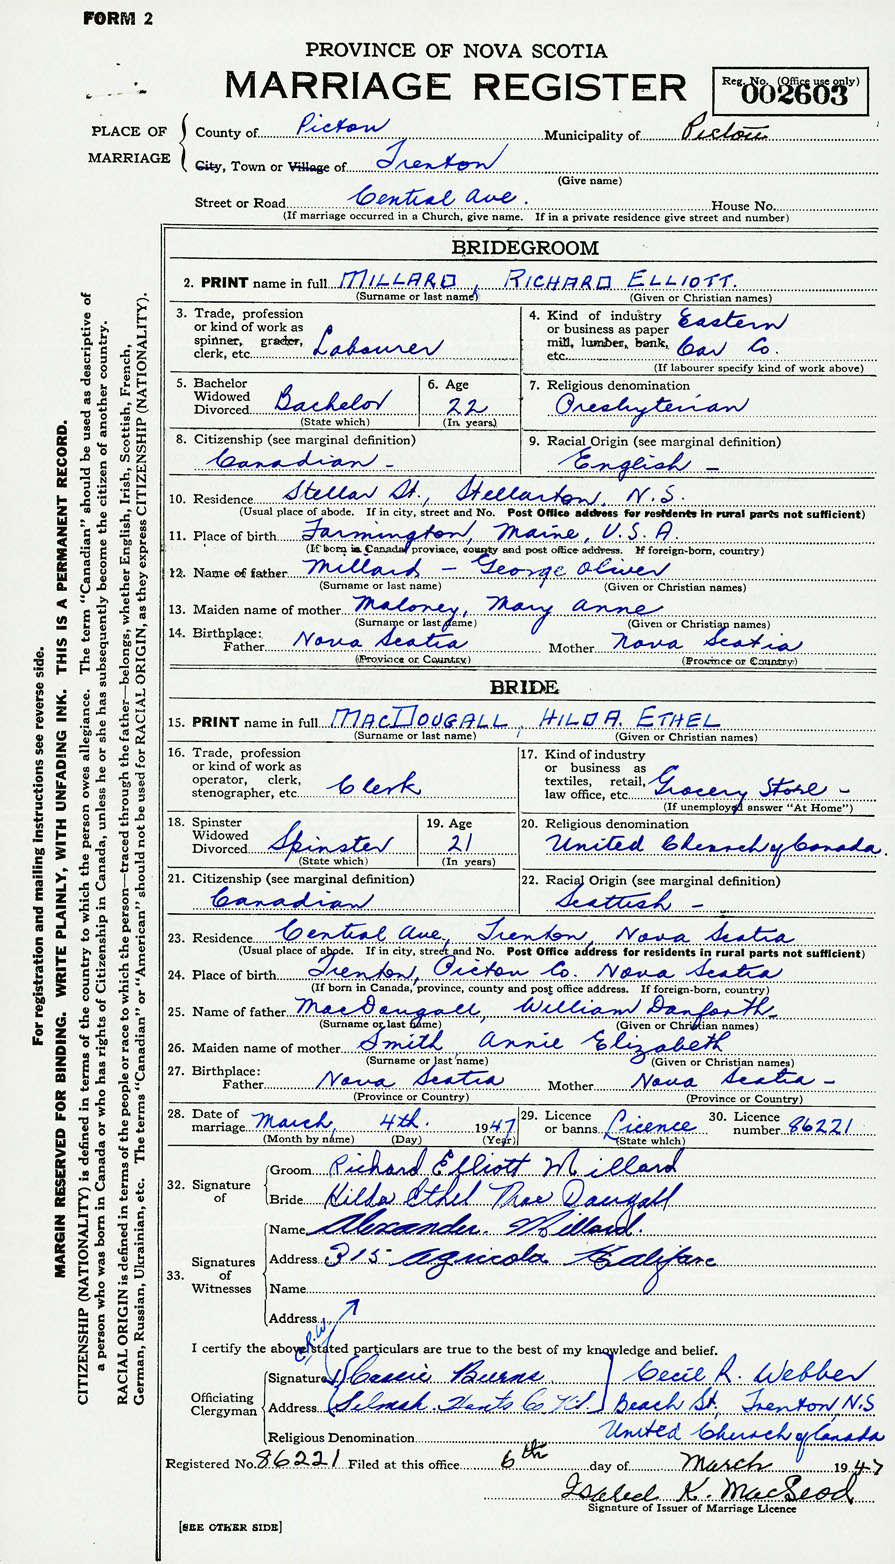 FORM 2
PROVINCE OF NOVA SCOTIA
MARRIAGE REGISTER
Reg. No. (Office use only)
002603
PLACE OF MARRIAGE
County of Pictou Municipality of Pictou
City, Town or Village of Trenton
(Give name)
Street or Road Central Ave. House No.
(If marriage occurred in a Church, give name. If in a private residence give street and number)
BRIDEGROOM
2. PRINT name in full MILLARD, RICHARD ELLIOTT.
(Surname or last name) (Given or Christian names)
3. Trade, profession or kind of work as spinner, grader, clerk, etc. Labourer
4. Kind of industry or business as paper mill, lumber, bank, etc. Eastern Car Co.
(If labourer specify kind of work above)
5. Bachelor Widowed Divorced Bachelor
(State which)
6. Age 22
(In years)
7. Religious denomination
Presbyterian
8. Citizenship (see marginal definition)
Canadian -
9. Racial Origin (see marginal definition)
English -
10. Residence Stellar St., Stellarton, N.S.
(Usual place of abode. If in city, street and No. Post Office address for residents in rural parts not sufficient)
11. Place of birth Farmington, Maine, U.S.A.
(If born in Canada, province, county and post office address. If foreign-born, country)
12. Name of father Millard - George Oliver
(Surname or last name) (Given or Christian names)
13. Maiden name of mother Maloney, Mary Anne
(Surname or last name) (Given or Christian names)
14. Birthplace: Father Nova Scotia Mother Nova Scotia
(Province or Country) (Province or Country)
BRIDE
15. PRINT name in full MACDOUGALL, HILDA ETHEL
(Surname or last name) (Given or Christian names)
16. Trade, profession or kind of work as operator, clerk, stenographer, etc. Clerk
17. Kind of industry or business as textiles, retail, law office, etc. Grocery Store -
(If unemployed answer "At Home")
18. Spinster Widowed Divorced Spinster
(State which)
19. Age 21
(In years)
20. Religious denomination
United Church of Canada.
21. Citizenship (see marginal definition)
Canadian
22. Racial Origin (see marginal definition)
Scottish -
23. Residence Central Ave, Trenton, Nova Scotia
(Usual place of abode. If in city, street and No. Post Office address for residents in rural parts not sufficient)
24. Place of birth Trenton, Pictou Co. Nova Scotia
(If born in Canada, province, county and post office address. If foreign-born, country)
25. Name of father MacDougall, William Danforth-
(Surname or last name) (Given or Christian names)
26. Maiden name of mother Smith Annie Elizabeth
(Surname or last name) (Given or Christian names)
27. Birthplace: Father Nova Scotia Mother Nova Scotia -
(Province or Country) (Province or Country)
28. Date of marriage March, 4th. 1947
(Month by name) (Day) (Year)
29. Licence or banns. Licence
(State which)
30. Licence number. 86221
32. Signature of
Groom Richard Elliott Millard
Bride Hilda Ethel Mac Dougall
33. Signatures of Witnesses
Name Alexander Millard.
Address 315 Agricola Halifax
Name
Address
C.R.W.
I certify the above stated particulars are true to the best of my knowledge and belief.
Officiating Clergyman
Signature Cassie Burns Cecil R. Webber
Address Selmah Hants Co N.S. Beach St., Trenton, N.S
Religious Denomination United Church of Canada
Registered No. 86221 Filed at this office 6th day of March 1947
Isabel K. MacLeod
Signature of Issuer of Marriage Licence
[SEE OTHER SIDE]
For registration and mailing instructions see reverse side.
MARGIN RESERVED FOR BINDING. WRITE PLAINLY, WITH UNFADING INK. THIS IS A PERMANENT RECORD.
CITIZENSHIP (NATIONALITY) is defined in terms of the country to which the person owes allegiance. The term "Canadian" should be used as descriptive of
a person who was born in Canada or who has rights of Citizenship in Canada, unless he or she has subsequently become the citizen of another country.
RACIAL ORIGIN is defined in terms of the people or race to which the person—traced through the father—belongs, whether English, Irish, Scottish, French,
German, Russian, Ukrainian, etc. The terms "Canadian" or "American" should not be used for RACIAL ORIGIN, as they express CITIZENSHIP (NATIONALITY).